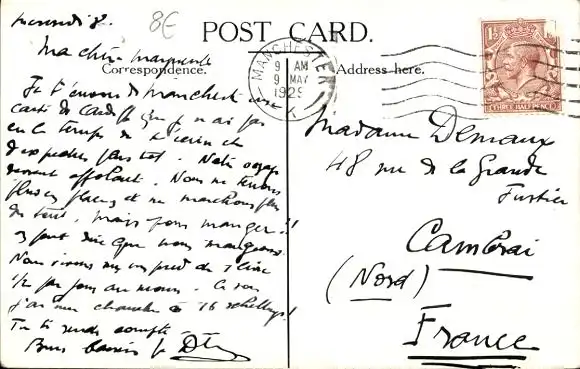 mercredi 8.
8E
POST CARD.
Ma chère Marguerite
Correspondence.
Address here.
MANCHESTER
9 AM
9 MAY
1929
1½
THREE HALF PENCE
Je t'envoie de Manchester une
carte de Cardiff que je n'ai pas
eu le temps de t'écrire et
d'expédier plus tôt. Notre voyage
devient affolant. Nous ne tenons
plus en place et ne marchons plus
du tout. Mais pour manger!!
il faut dire que nous mangeons.
Nous vivons sur un pied de 1 livre
1/2 par jour au moins. Ce soir
j'ai une chambre à 16 schellings!
Tu te rends compte
Bons baisers
Madame Demaux
48 rue de la Grande
Cambrai
(Nord)
France